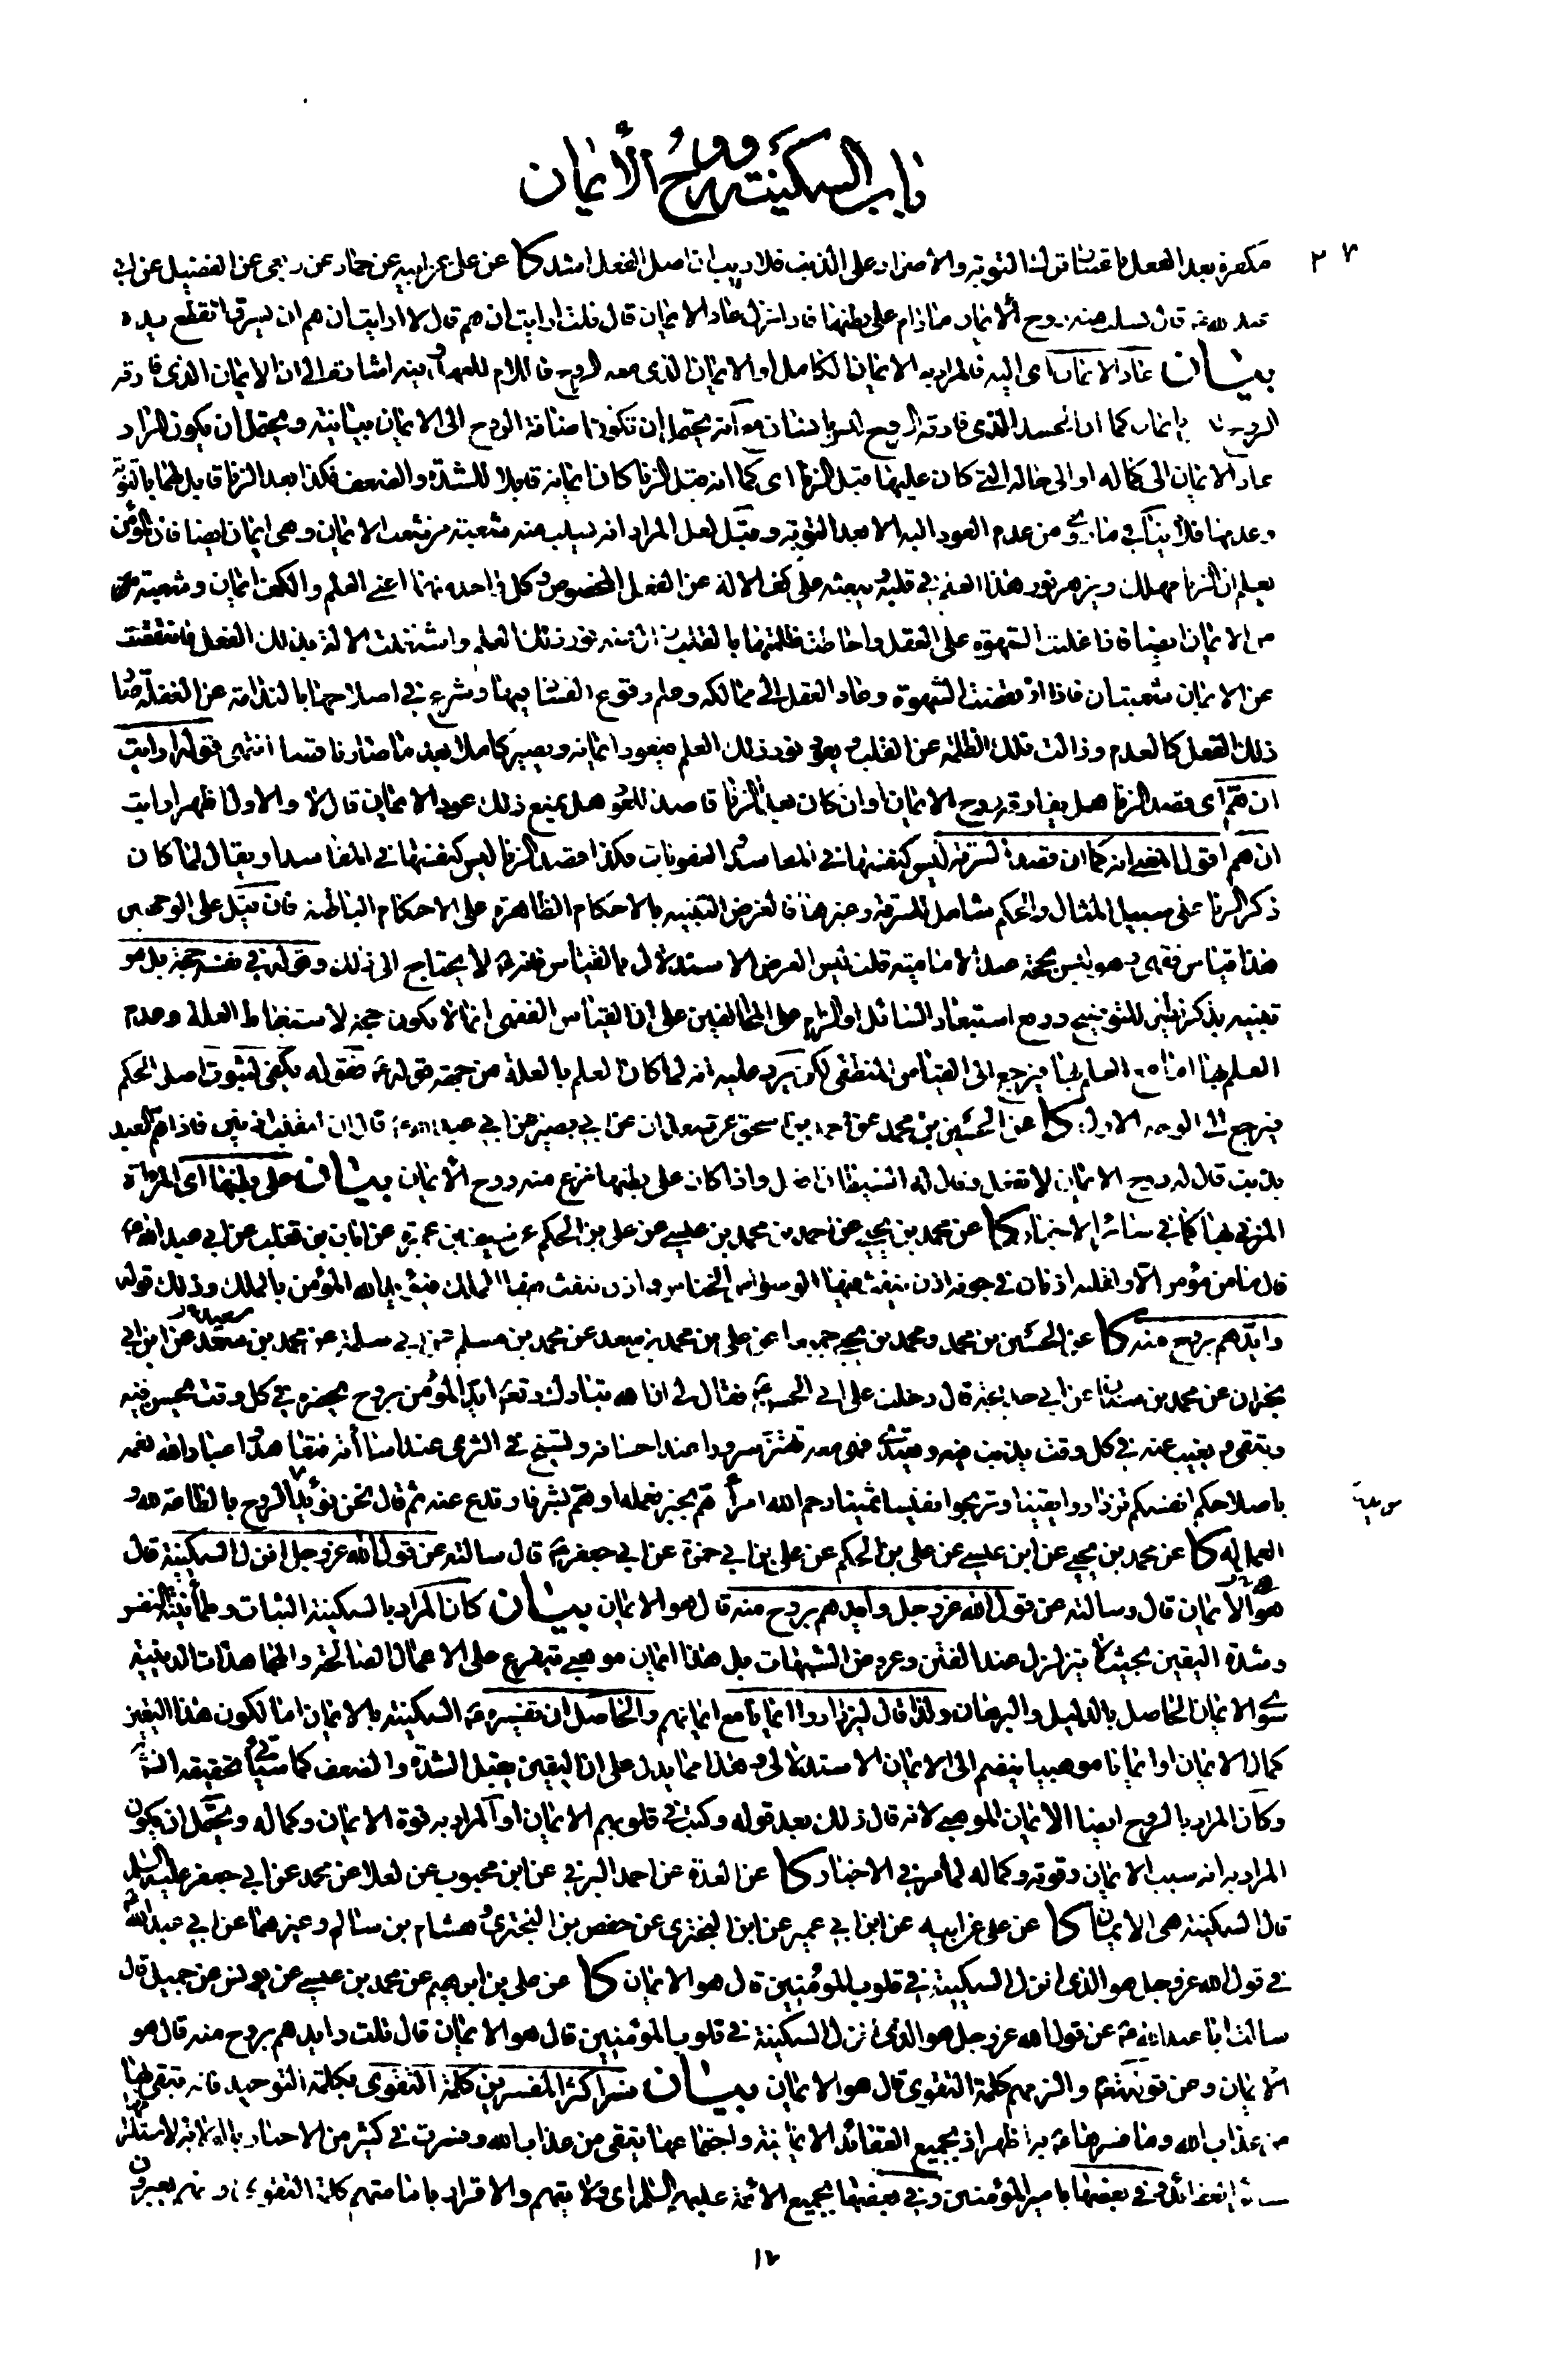 باب السكينة وروح الأيمان
٢٧
مكفرة بعد الفعل فاقتضا ترك التوبة والاصرار على الذنب فلا ريب ان اصل الفعل اشد كا عن على عن ابيه عن حماد عن ربعى عن الفضيل عن ابى
عبد الله ع قال يسلب منه روح الأيمان ما دام على بطنها فاذا نزل عاد الايمان قال قلت ارايت ان هم قال لا ارايت ان هم ان يسرق اتقطع يده
بيان عاد الايمان اى اليه فالمراد به الايمان الكامل او الايمان الذى معه الروح فاللام للعهد وفيه اشارة الى ان الايمان الذى فارقه
الروح ليس بايمان كما ان الجسد الذى فارقه الروح ليس بانسان مع انه يحتمل ان تكون اضافة الروح الى الايمان بيانية ويحتمل ان يكون المراد
عاد الايمان الى كماله او الى حاله التى كان عليها قبل الزنا اى كما انه قبل الزنا كان ايمانه قابلا للشدة والضعف فكذا بعد الزنا قابل لهما بالتوبة
وعدمها فلا ينافى ما من عدم العود اليه الا بعد التوبة وقيل لعل المراد انه يسلب منه شعبة من شعب الايمان وهى ايمان ايضا فان المؤمن
يعلم ان الزنا مهلك ويزهر نور هذا العلم فى قلبه ويبعثه على كف الالة عن الفعل المخصوص وكل واحد منهما اعنى العلم والكف ايمان وشعبة
من الايمان ايضا فاذا غلبت الشهوة على العقل واحاطت ظلمتها بالقلب زال عنه نور ذلك العلم واشتغلت الالة بذلك الفعل فانتقضت
عن الايمان شعبتان فاذا انقضت الشهوة وعاد العقل الى ممالكه وعلم وقوع الفساد فيها وشرع فى اصلاحها بالندامة عن الغفلة صار
ذلك الفعل كالعدم وزالت تلك الظلمة عن القلب ويعود نور ذلك العلم فيعود ايمانه ويصير كاملا بعد ما صار ناقصا انتهى قوله ارايت
ان هم اى قصد الزنا هل يفارقه روح الايمان او ان كان بعد الزنا قاصدا للعود هل يمنع ذلك عود الايمان قال لا والاول اظهر ارايت
ان هم اقول المعنى انه كما ان قصد السرقة ليس كنفسها فى المفاسد والعقوبات فكذا قصد الزنا ليس كنفسها فى المفاسد او يقال لما كان
ذكر الزنا على سبيل المثال والحكم شامل للسرقة وغيرها فالغرض التنبيه بالاحكام الظاهرة على الاحكام الباطنة فان قيل على الوجهين
هذا قياس فقهى وهو ليس بحجة عند الامامية قلت ليس الغرض الاستدلال بالقياس فانه ع لا يحتاج الى ذلك وقوله فى نفسه حجة بل هو
تنبيه بذكر نظير للتوضيح ودفع استبعاد السائل او الزام على المخالفين على ان القياس الفقهى انما لا يكون حجة لاستنباط العلة وعدم
العلم بها اما مع العلم بها فيرجع الى القياس المنطقى لكن يرد عليه انه لما كان العلم بالعلة من جهة قوله ع فقوله يكفى لثبوت اصل الحكم
فيرجع الى الوجه الاول كا عن الحسين بن محمد عن احمد بن اسحق عن سعدان عن ابى بصير عن ابى عبد الله ع قال ان للقلب اذنين فاذا هم العبد
بذنب قال له روح الايمان لا تفعل وقال له الشيطان افعل واذا كان على بطنها نزع منه روح الأيمان بيان على بطنها اى المرأة
المزنى بها كما فى سائر الاخبار كا عن محمد بن يحيى عن احمد بن محمد بن عيسى عن على بن الحكم عن سيف بن عميرة عن ابان بن تغلب عن ابى عبد الله ع
قال ما من مؤمن الا ولقلبه اذنان فى جوفه اذن ينفث فيها الوسواس الخناس واذن ينفث فيها الملك فيؤيد الله المؤمن بالملك وذلك قوله
وايدهم بروح منه كا عن الحسين بن محمد ومحمد بن يحيى جميعا عن على بن محمد بن سعد عن محمد بن مسلم عن ابى سلمة عن محمد بن سعيد عن ابن ابى
نجران عن محمد بن سنان عن ابى خديجة قال دخلت على ابى الحسن ع فقال لى ان الله تبارك وتعالى ايد المؤمن بروح يحضره فى كل وقت يحسن فيه
ويتقى ويغيب عنه فى كل وقت يذنب فيه ويعتدى فهى معه تهتز سرورا عند احسانه وتسيخ فى الثرى عند اساءته فتعاهدوا عباد الله نعمه
باصلاحكم انفسكم تزدادوا يقينا وتربحوا نفيسا ثمينا رحم الله امرأ هم بخير فعمله او هم بشر فارتدع عنه ثم قال نحن نؤيد الروح بالطاعة لله و
العمل له كا عن محمد بن يحيى عن ابن عيسى عن على بن الحكم عن على بن ابى حمزة عن ابى جعفر ع قال سالته عن قول الله عز وجل انزل السكينة قال
هو الأيمان قال وسالته عن قول الله عز وجل وايدهم بروح منه قال هو الايمان بيان كان المراد بالسكينة الثبات وطمأنينة النفس
وشدة اليقين بحيث لا يتزلزل عند الفتن وعروض الشبهات بل هذا ايمان موهبى يتفرع على الاعمال الصالحة والمجاهدات الدينية
سوى الايمان الحاصل بالدليل والبرهان ولذا قال ليزدادوا ايمانا مع ايمانهم والحاصل ان تفسيره ع السكينة بالايمان اما لكون هذا اليقين
كمال الايمان او ايمانا موهبيا ينضم الى الايمان الاستدلالى وهذا مما يدل على ان اليقين يقبل الشدة والضعف كما سيأتى تحقيقه انشاء
وكان المراد بالروح ايضا الايمان الموهبى لانه قال ذلك بعد قوله وكتب فى قلوبهم الايمان او المراد به قوة الايمان وكماله ويحتمل ان يكون
المراد به انه سبب الايمان وقوته وكماله لما مر فى الاخبار كا عن العدة عن احمد البرقى عن ابن محبوب عن العلا عن محمد عن ابى جعفر عليه السلام
قال السكينة هى الايمان كا عن على عن ابيه عن ابن ابى عمير عن ابن البخترى عن حفص بن البخترى وهشام بن سالم وغيرهما عن ابى عبد الله ع
فى قول الله عز وجل هو الذى انزل السكينة فى قلوب المؤمنين قال هو الايمان كا عن على بن ابراهيم عن محمد بن عيسى عن يونس عن جميل قال
سالت ابا عبد الله ع عن قول الله عز وجل هو الذى انزل السكينة فى قلوب المؤمنين قال هو الايمان قال قلت وايدهم بروح منه قال هو
الايمان وعن قوله تعالى والزمهم كلمة التقوى قال هو الايمان بيان فسر اكثر المفسرين كلمة التقوى بكلمة التوحيد فانه يتقى بها
من عذاب الله وما فسرها ع به اظهر اذ بجميع العقائد الايمانية واجتماعها يتقى من عذاب الله وفسرت فى كثير من الاخبار بالولاية لاستلزامها
سائر العقائد وفى بعضها بامير المؤمنين وفى بعضها بجميع الائمة عليهم السلم اى ولايتهم والاقرار بامامتهم كلمة التقوى و يعبرون
١٢